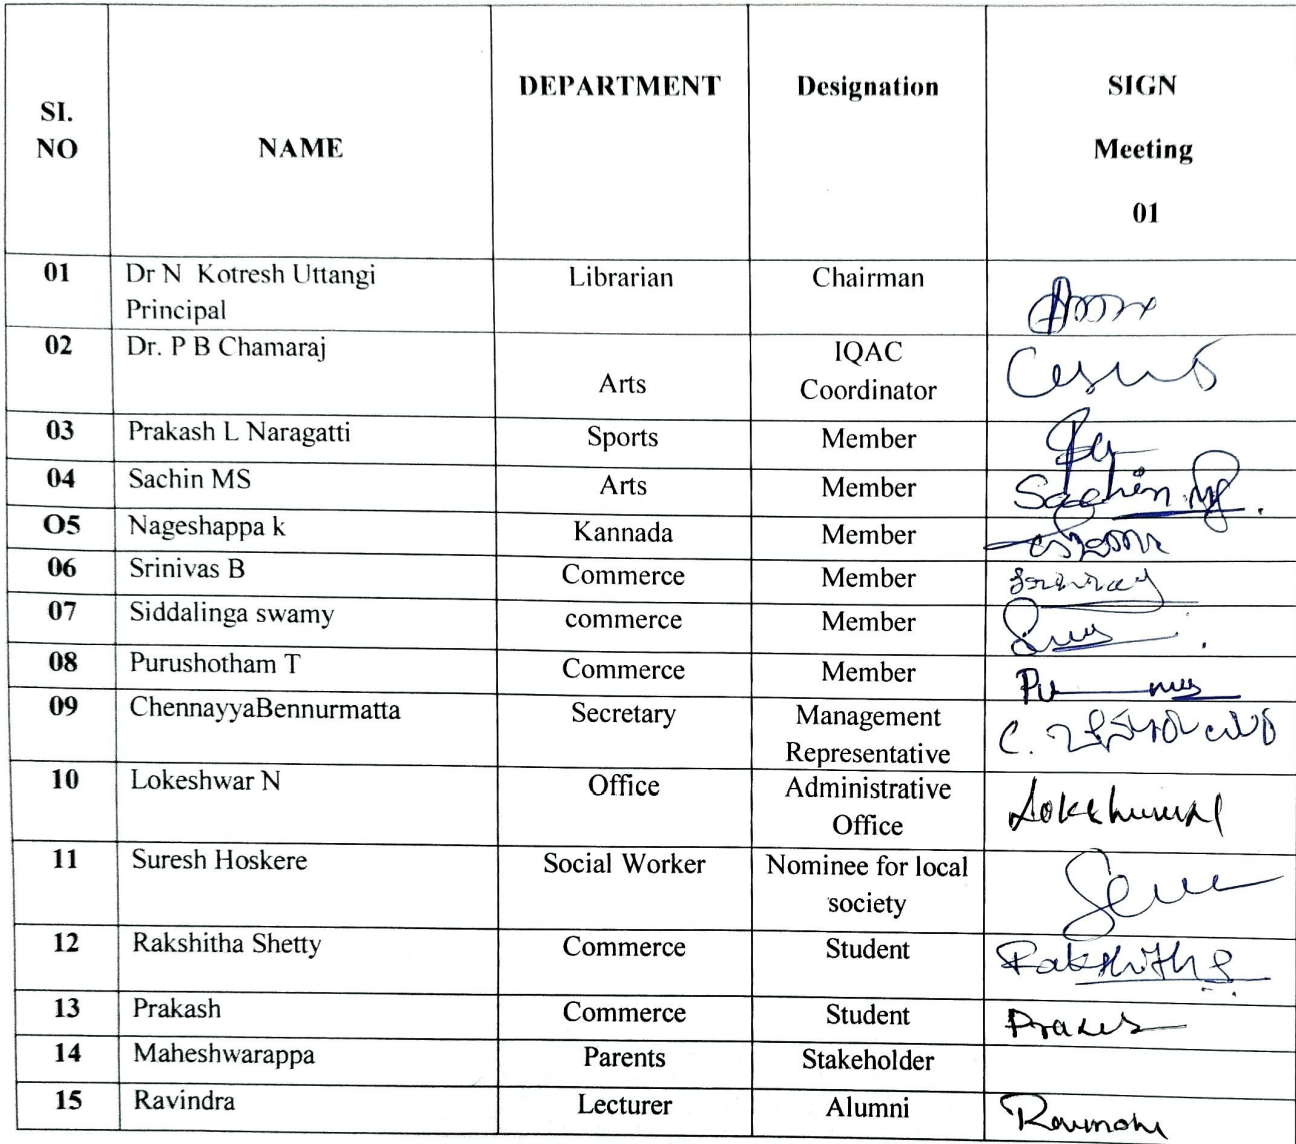 SI. NO NAME DEPARTMENT Designation SIGN Meeting 01
01 Dr N Kotresh Uttangi Principal Librarian Chairman
02 Dr. P B Chamaraj Arts IQAC Coordinator
03 Prakash L Naragatti Sports Member
04 Sachin MS Arts Member Sachin MS
O5 Nageshappa k Kannada Member
06 Srinivas B Commerce Member
07 Siddalinga swamy commerce Member
08 Purushotham T Commerce Member
09 ChennayyaBennurmatta Secretary Management Representative
10 Lokeshwar N Office Administrative Office
11 Suresh Hoskere Social Worker Nominee for local society
12 Rakshitha Shetty Commerce Student
13 Prakash Commerce Student
14 Maheshwarappa Parents Stakeholder
15 Ravindra Lecturer Alumni